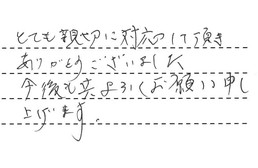 とても親切に対応して頂き
ありがとうございました
今後も宜よろしくお願い申し
上げます。